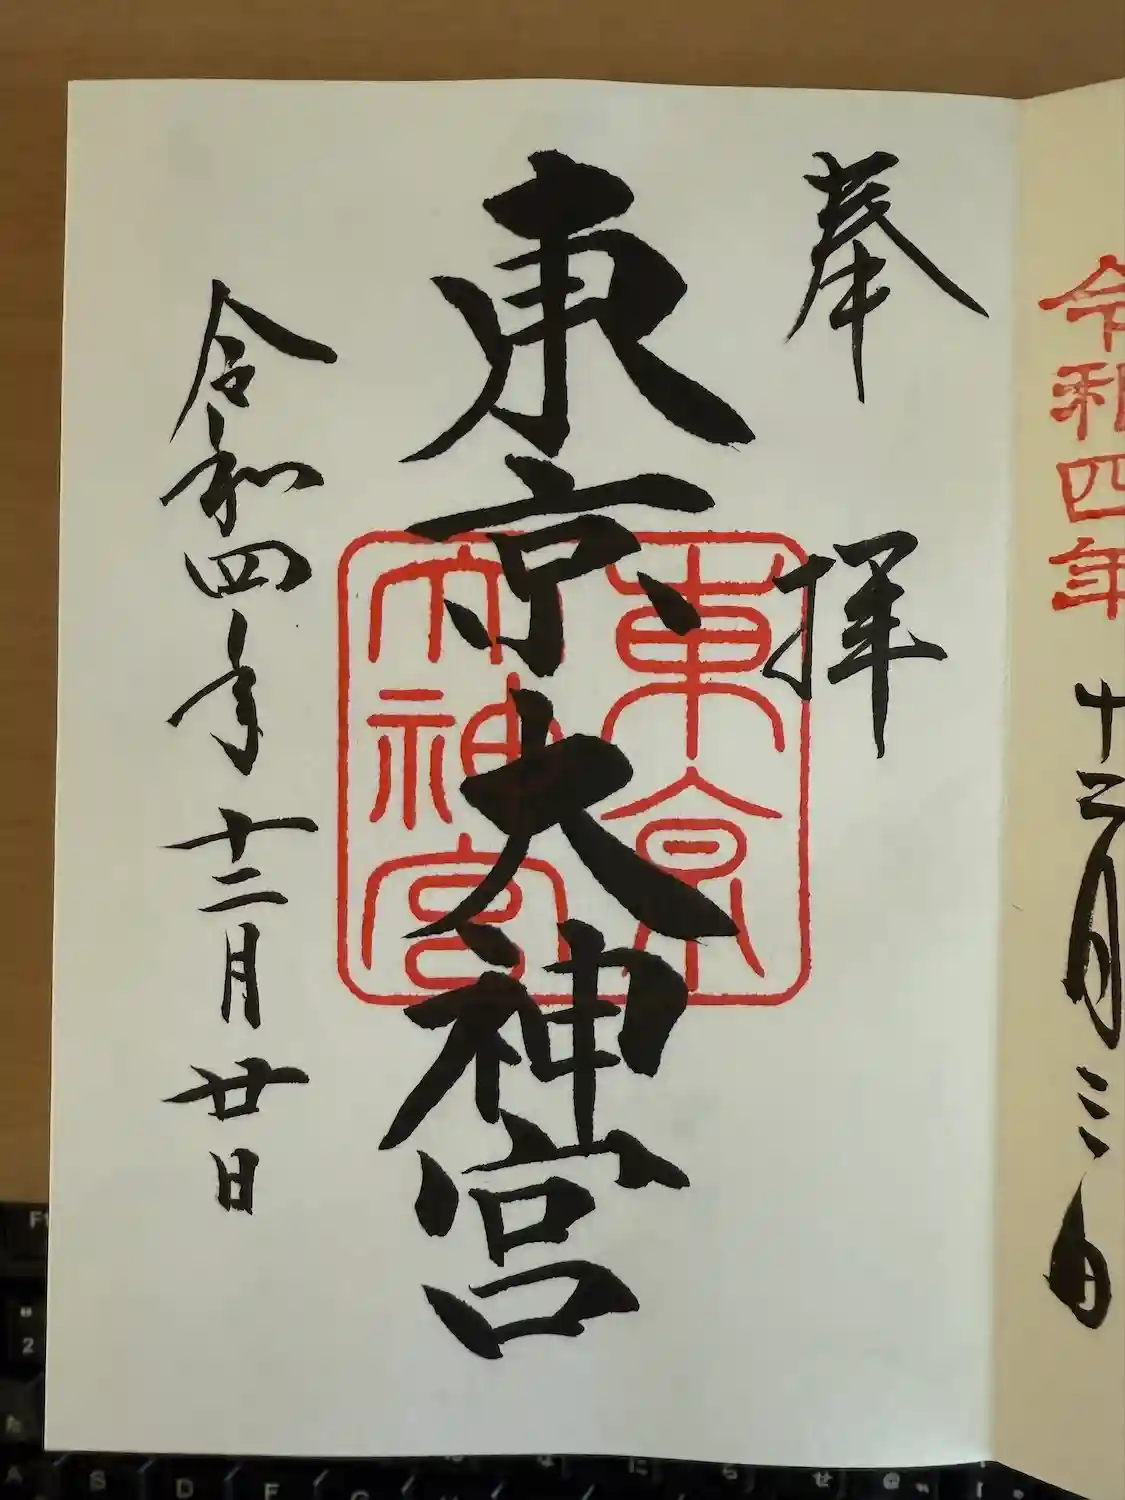 令和四年
十二月三日
奉拝
東京大神宮
東京
大神宮
令和四年十二月廿日
2
A
S
D
F
G
た
な
に
ら
せ
@